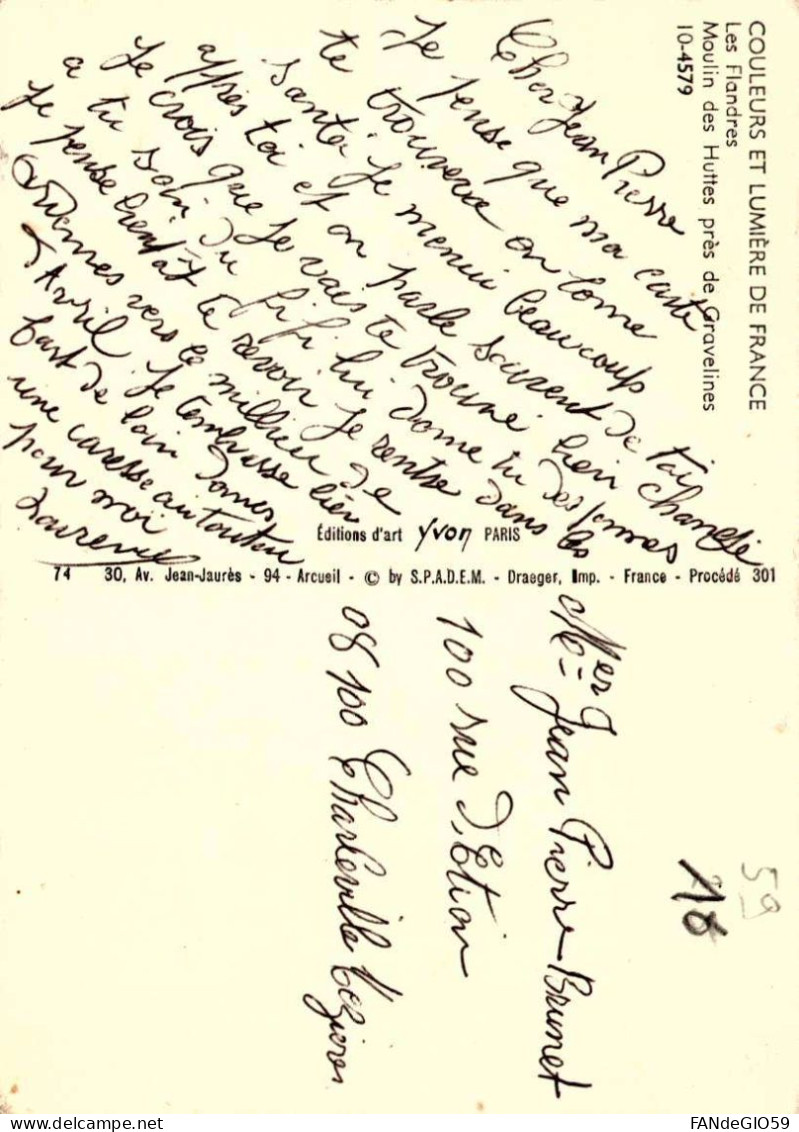 COULEURS ET LUMIÈRE DE FRANCE
Les Flandres
Moulin des Huttes près de Gravelines
10-4579
Cher Jean Pierre
Je pense que ma carte
te trouvera en bonne
santé je menui beaucoup
appres toi et on parle souvent de toi
Je crois que je vais te trouvé bien changé
a tu soin du fifi lui donne tu des pommes
je pense bientât te revoir je rentre dans les
Ardennes vers le millieu de
Avril je t'embrasse bien
fort de loin donnes
une caresse au toutou
pour moi
Éditions d'art Yvon PARIS
74 30, Av. Jean-Jaurès - 94 - Arcueil - © by S.P.A.D.E.M. - Draeger, Imp. - France - Procédé 301
Mer Jean Pierre Brunet
100 rue d'Etion
08100 Charleville Mezieres
59
FANdeGIO59